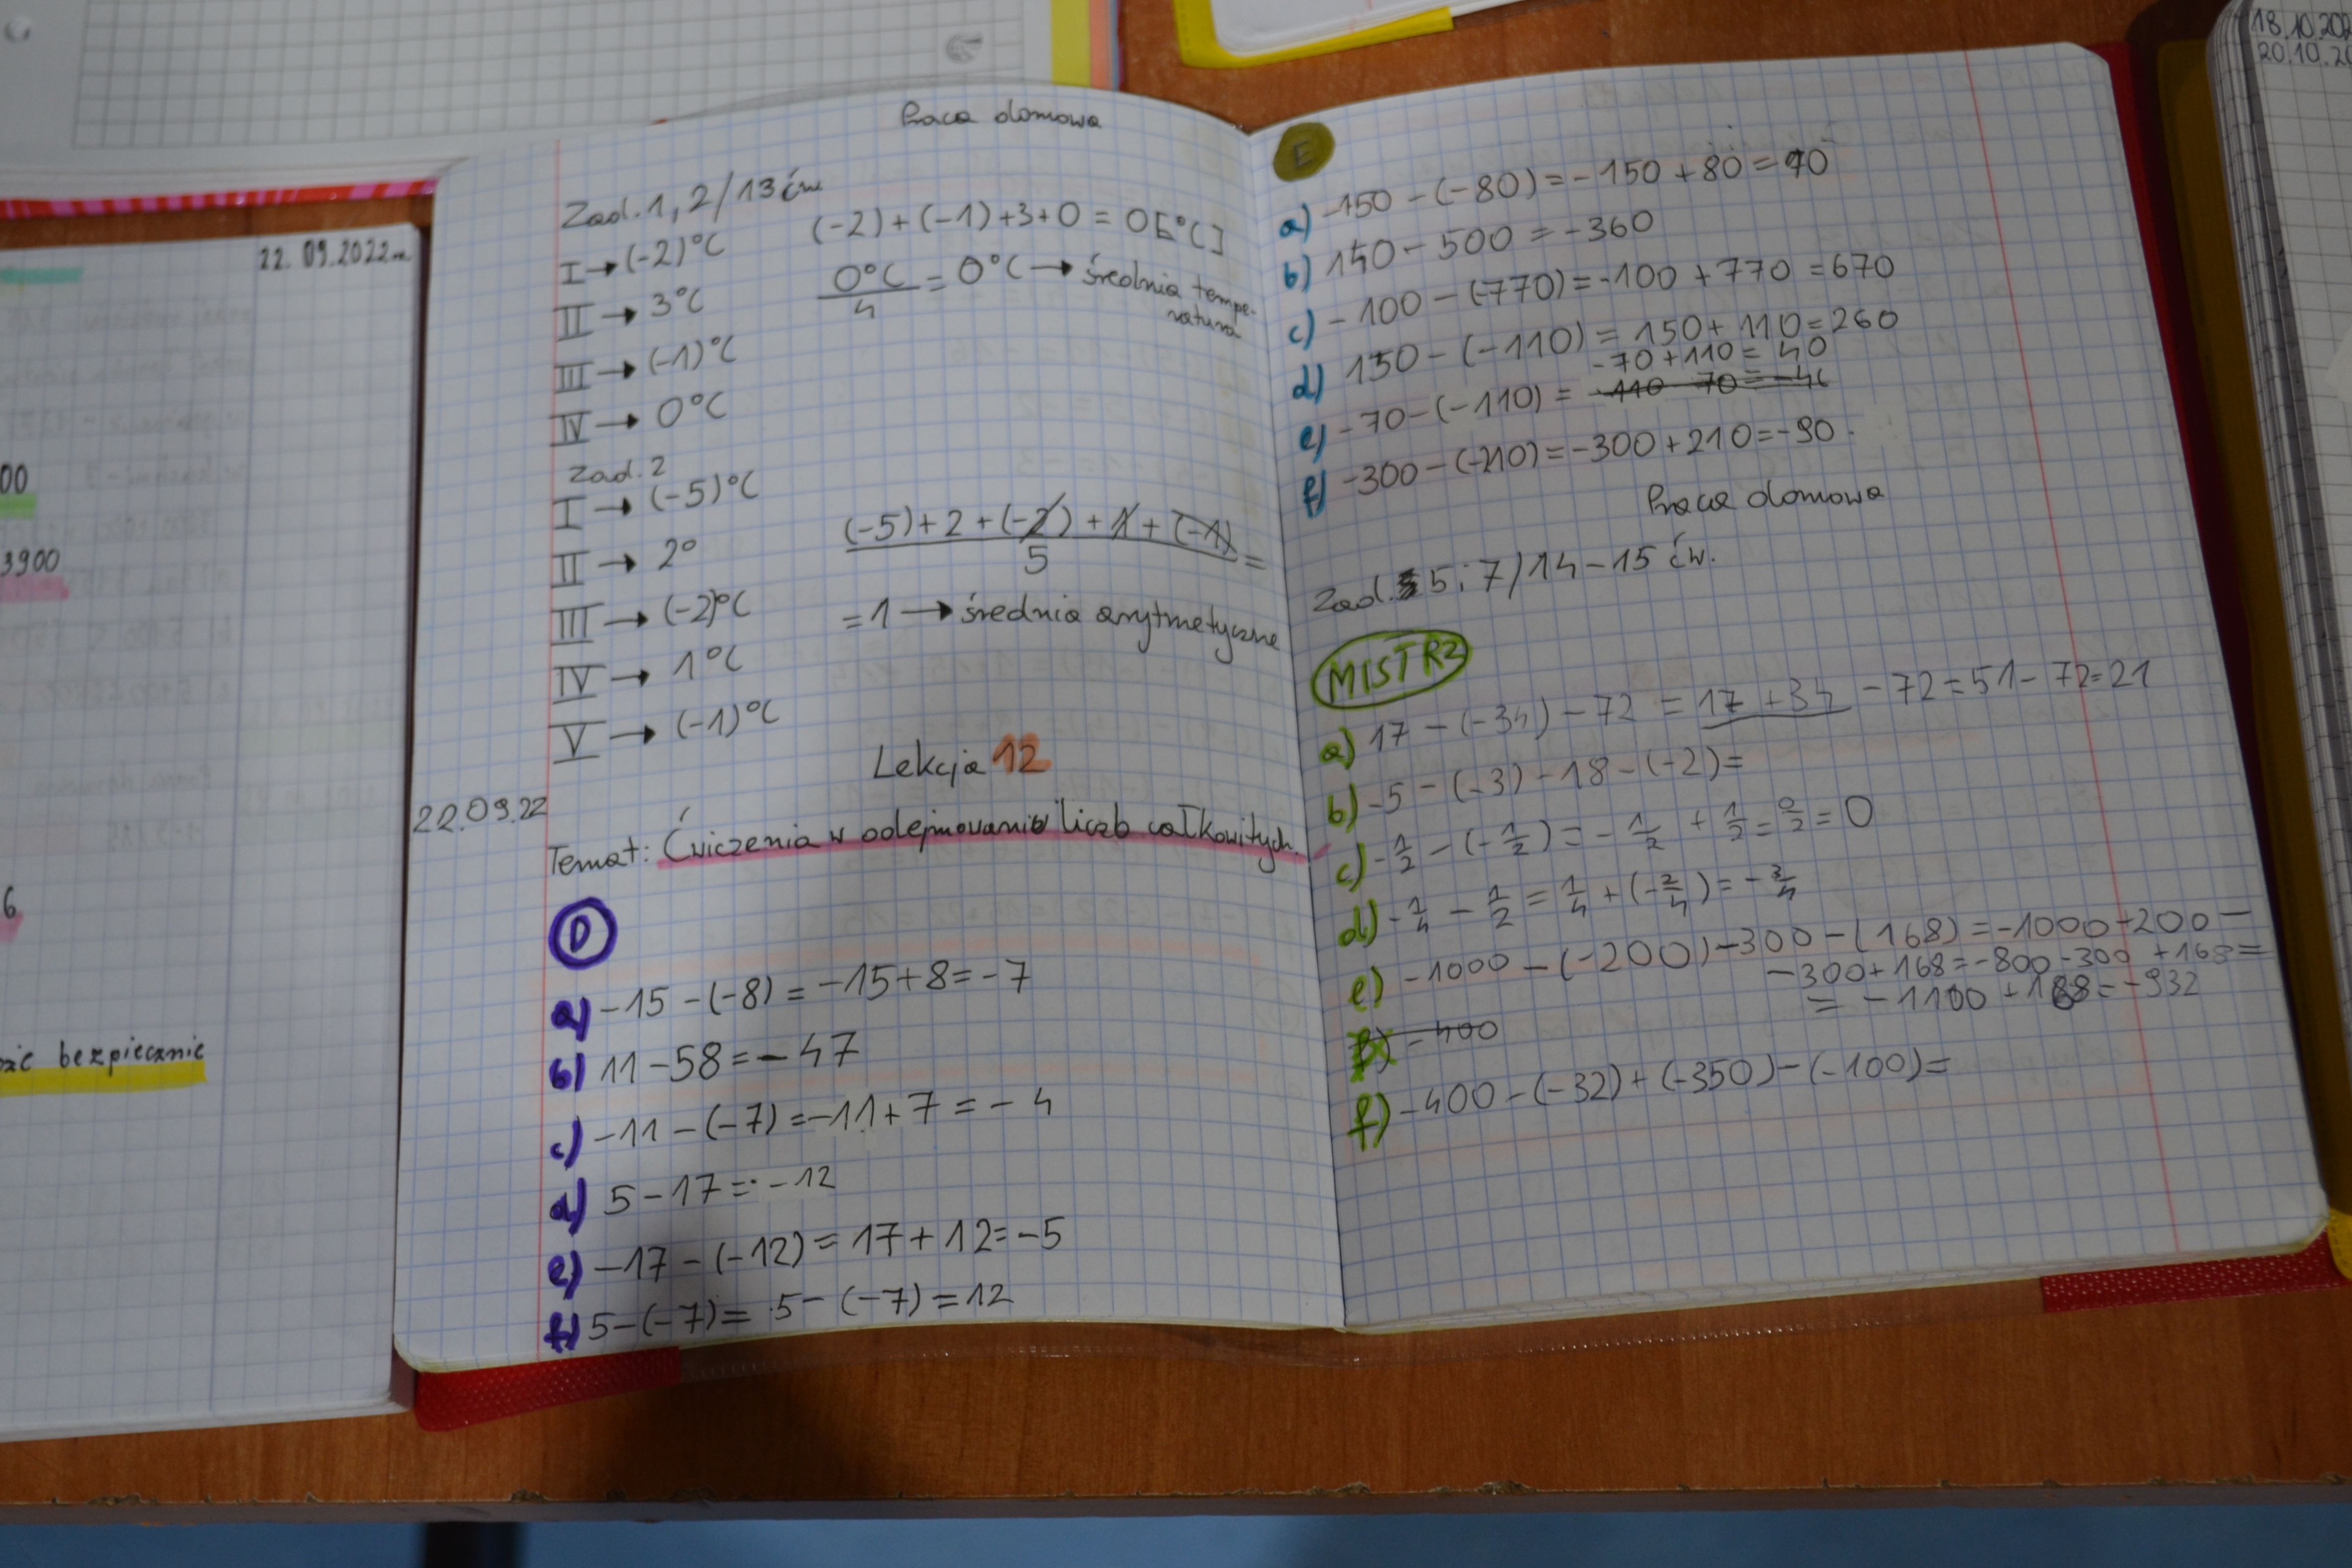 22.09.2022r.
00
3900
6
bezpiecznie
Praca domowa
Zad. 1, 2/13 ćw
I → (-2)°C
(-2)+(-1)+3+0 = 0[°C]
II → 3°C
0°C/4 = 0°C → średnia tempe-
ratura
III → (-1)°C
IV → 0°C
Zad. 2
I → (-5)°C
(-5)+2+(-2)+1+(-1)/5 =
II → 2°
III → (-2)°C
= 1 → średnia arytmetyczna
IV → 1°C
V → (-1)°C
Lekcja 12
22.09.22
Temat: Ćwiczenia w odejmowaniu liczb całkowitych.
D
a) -15-(-8) = -15+8 = -7
b) 11-58 = -47
c) -11-(-7) = -11+7 = -4
d) 5-17 = -12
e) -17-(-12) = 17+12 = -5
f) 5-(-7) = 5-(-7) = 12
E
a) -150-(-80) = -150+80 = 70
b) 140-500 = -360
c) -100-(-770) = -100+770 = 670
d) 150-(-110) = 150+110 = 260
-70+110 = 40
e) -70-(-110) =
f) -300-(-210) = -300+210 = -90
Praca domowa
Zad. 5i7/14-15 ćw.
MISTRZ
a) 17-(-34)-72 = 17+34-72 = 51-72 = 21
b) -5-(-3)-18-(-2) =
c) -1/2-(-1/2) = -1/2+1/2 = 0/2 = 0
d) -1/4-1/2 = 1/4+(-2/4) = -3/4
e) -1000-(-200)-300-(168) = -1000+200-
-300+168 = -800-300+168 =
= -1100+168 = -932
f) -400
f) -400-(-32)+(-350)-(-100) =
18.10.202
20.10.20